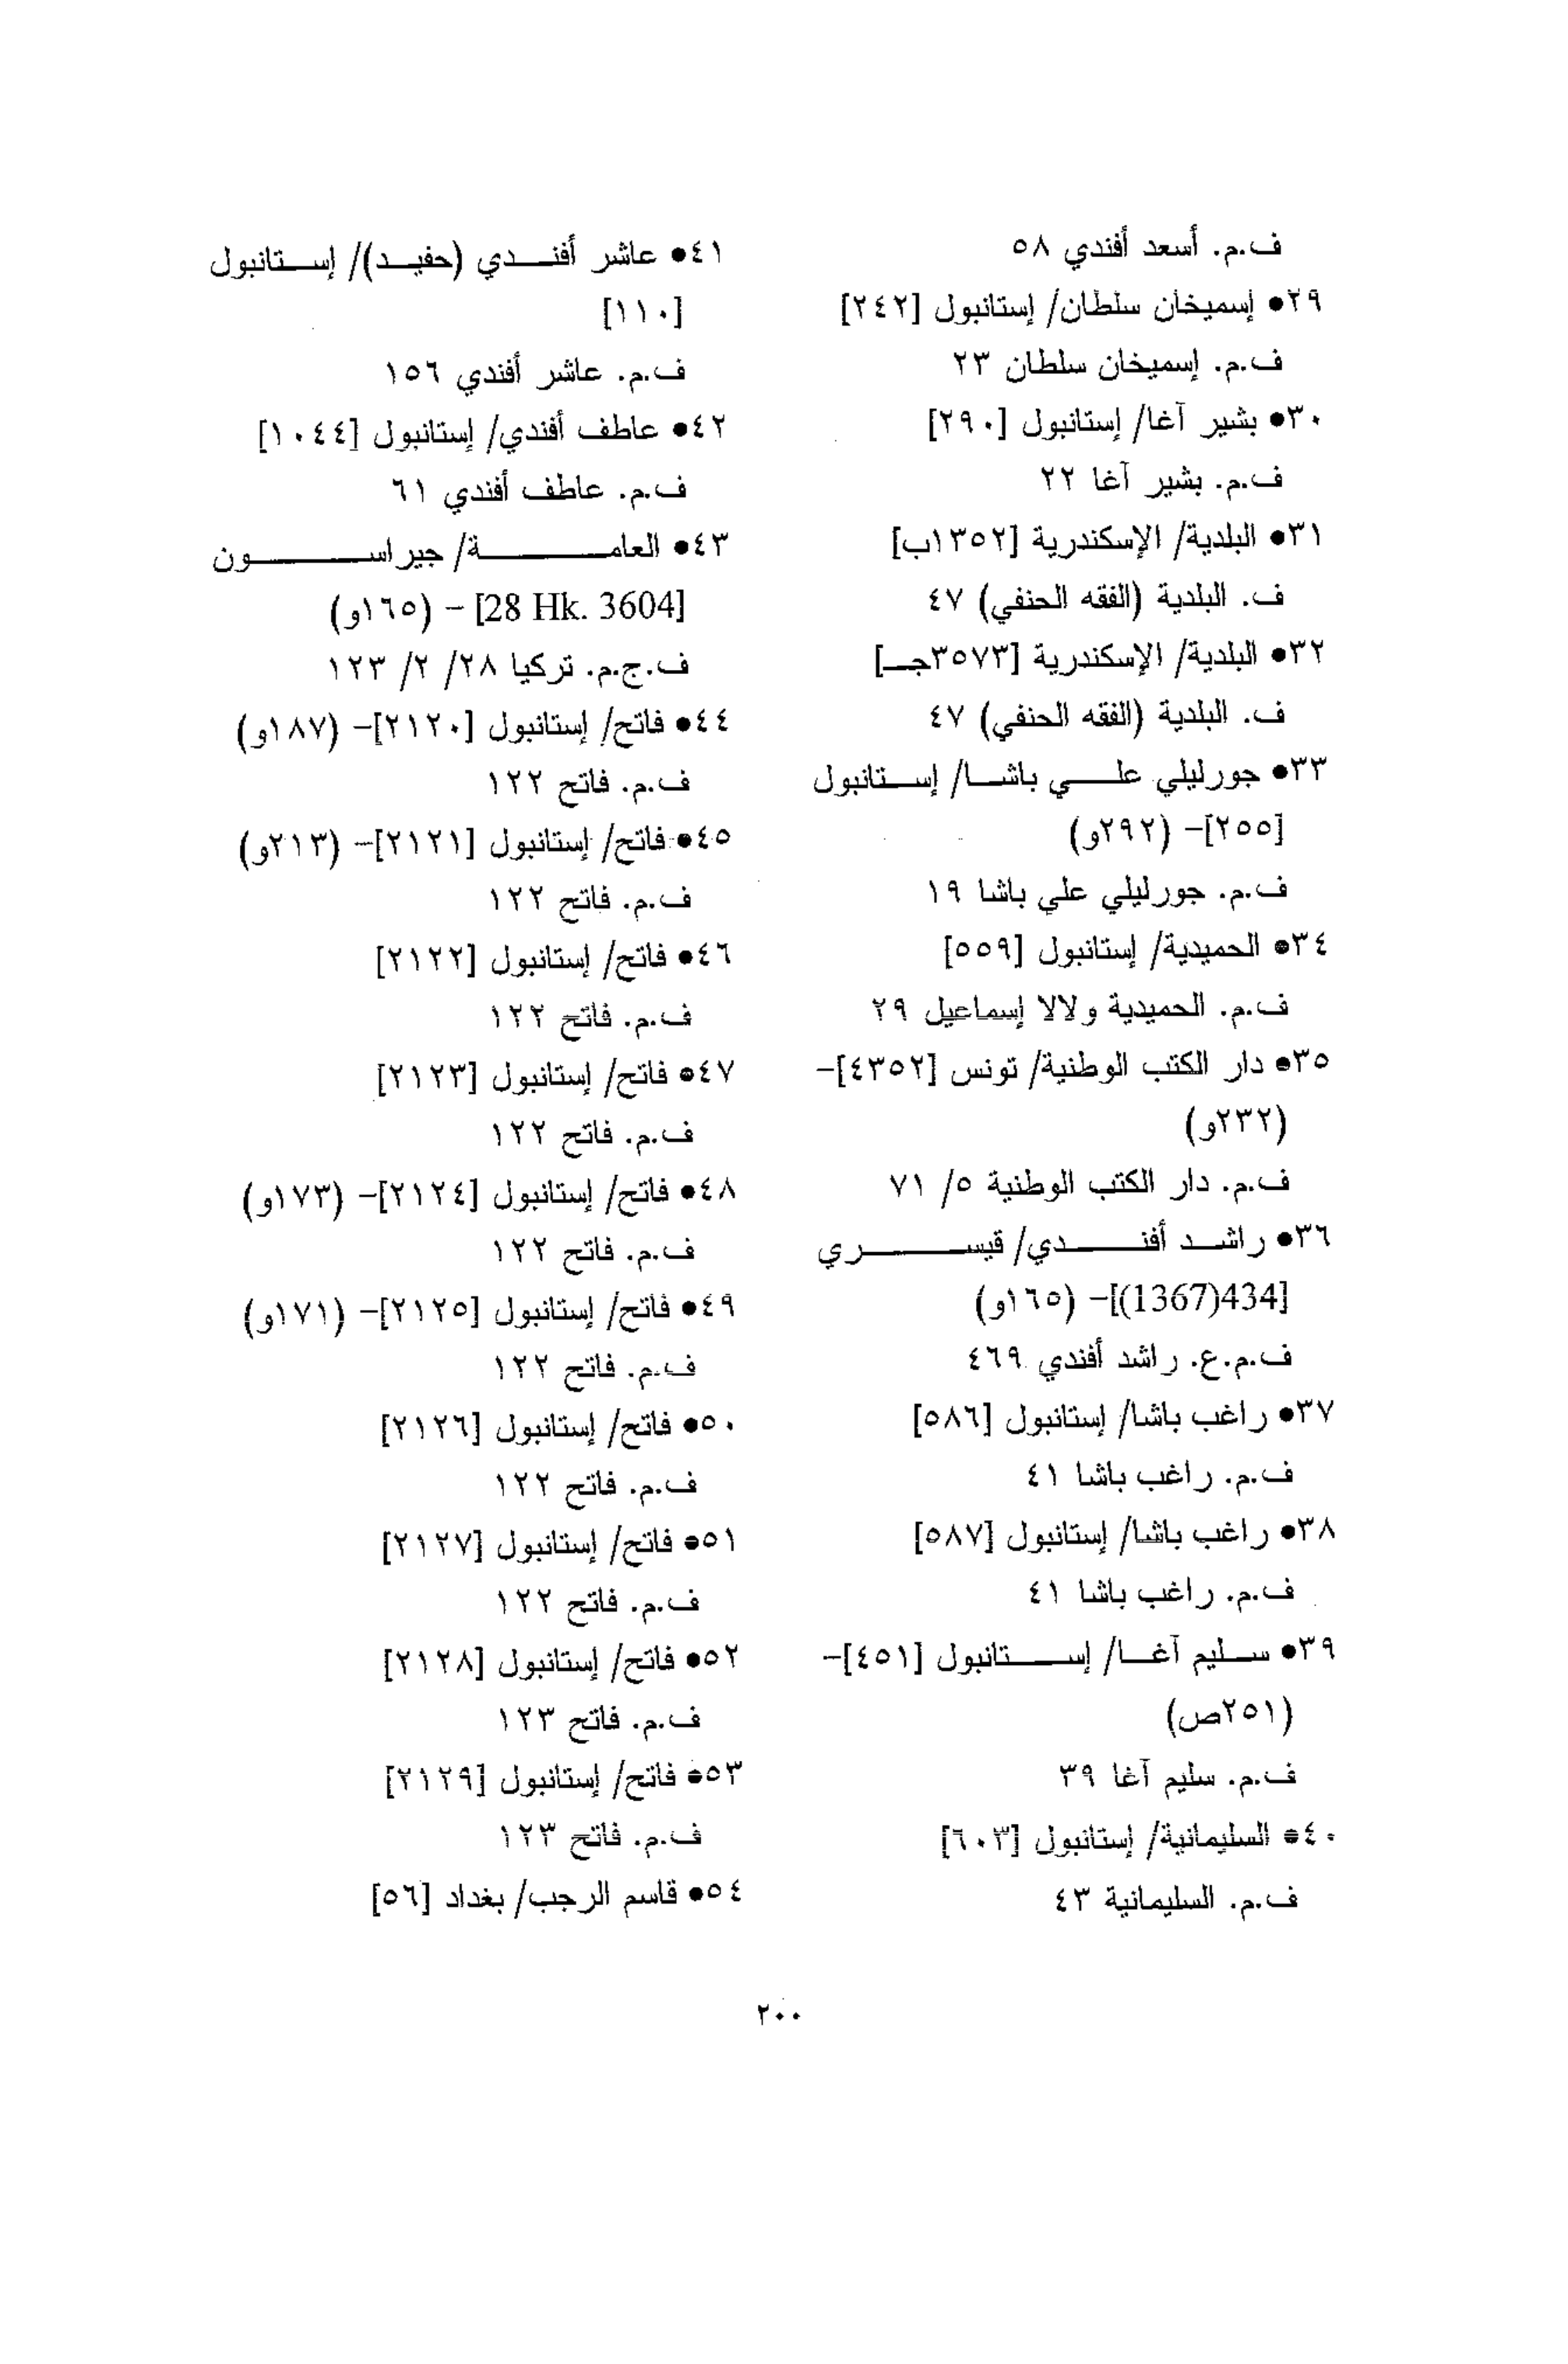 ف.م. أسعد أفندي ٥٨
٢٩• إسميخان سلطان/ إستانبول [٢٤٢]
ف.م. إسميخان سلطان ٢٣
٣٠• بشير آغا/ إستانبول [٢٩٠]
ف.م. بشير آغا ٢٢
٣١• البلدية/ الإسكندرية [١٣٥٢ب]
ف. البلدية (الفقه الحنفي) ٤٧
٣٢• البلدية/ الإسكندرية [٣٥٧٣جـ]
ف. البلدية (الفقه الحنفي) ٤٧
٣٣• جورليلي علي باشا/ إستانبول
[٢٥٥]- (٢٩٢و)
ف.م. جورليلي علي باشا ١٩
٣٤• الحميدية/ إستانبول [٥٥٩]
ف.م. الحميدية ولالا إسماعيل ٢٩
٣٥• دار الكتب الوطنية/ تونس [٤٣٥٢]-
(٢٣٢و)
ف.م. دار الكتب الوطنية ٥/ ٧١
٣٦• راشد أفندي/ قيسري
[434(1367)]- (١٦٥و)
ف.م.ع. راشد أفندي ٤٦٩
٣٧• راغب باشا/ إستانبول [٥٨٦]
ف.م. راغب باشا ٤١
٣٨• راغب باشا/ إستانبول [٥٨٧]
ف.م. راغب باشا ٤١
٣٩• سليم آغا/ إستانبول [٤٥١]-
(٢٥١ص)
ف.م. سليم آغا ٣٩
٤٠• السليمانية/ إستانبول [٦٠٣]
ف.م. السليمانية ٤٣
٤١• عاشر أفندي (حفيد)/ إستانبول
[١١٠]
ف.م. عاشر أفندي ١٥٦
٤٢• عاطف أفندي/ إستانبول [١٠٤٤]
ف.م. عاطف أفندي ٦١
٤٣• العامة/ جيراسون
[28 Hk. 3604] - (١٦٥و)
ف.ج.م. تركيا ٢٨/ ٢/ ١٢٣
٤٤• فاتح/ إستانبول [٢١٢٠]- (١٨٧و)
ف.م. فاتح ١٢٢
٤٥• فاتح/ إستانبول [٢١٢١]- (٢١٣و)
ف.م. فاتح ١٢٢
٤٦• فاتح/ إستانبول [٢١٢٢]
ف.م. فاتح ١٢٢
٤٧• فاتح/ إستانبول [٢١٢٣]
ف.م. فاتح ١٢٢
٤٨• فاتح/ إستانبول [٢١٢٤]- (١٧٣و)
ف.م. فاتح ١٢٢
٤٩• فاتح/ إستانبول [٢١٢٥]- (١٧١و)
ف.م. فاتح ١٢٢
٥٠• فاتح/ إستانبول [٢١٢٦]
ف.م. فاتح ١٢٢
٥١• فاتح/ إستانبول [٢١٢٧]
ف.م. فاتح ١٢٢
٥٢• فاتح/ إستانبول [٢١٢٨]
ف.م. فاتح ١٢٣
٥٣• فاتح/ إستانبول [٢١٢٩]
ف.م. فاتح ١٢٣
٥٤• قاسم الرجب/ بغداد [٥٦]
٢٠٠